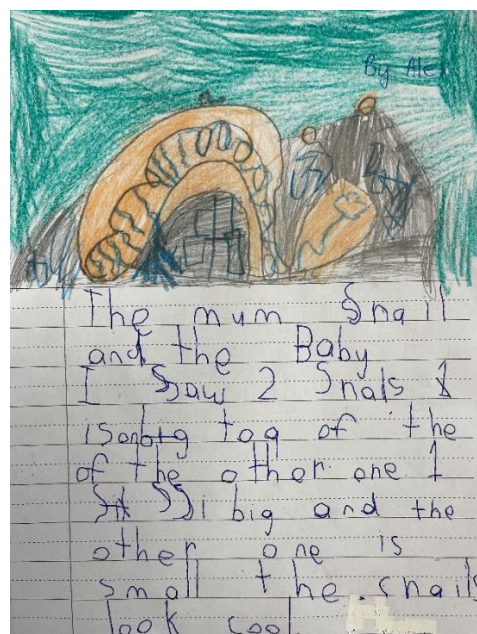 By Ale
The mum Snail
and the Baby
I Saw 2 Snals 1
is on toq of the
of the other one 1
is big and the
other one is
small the snails
look cool